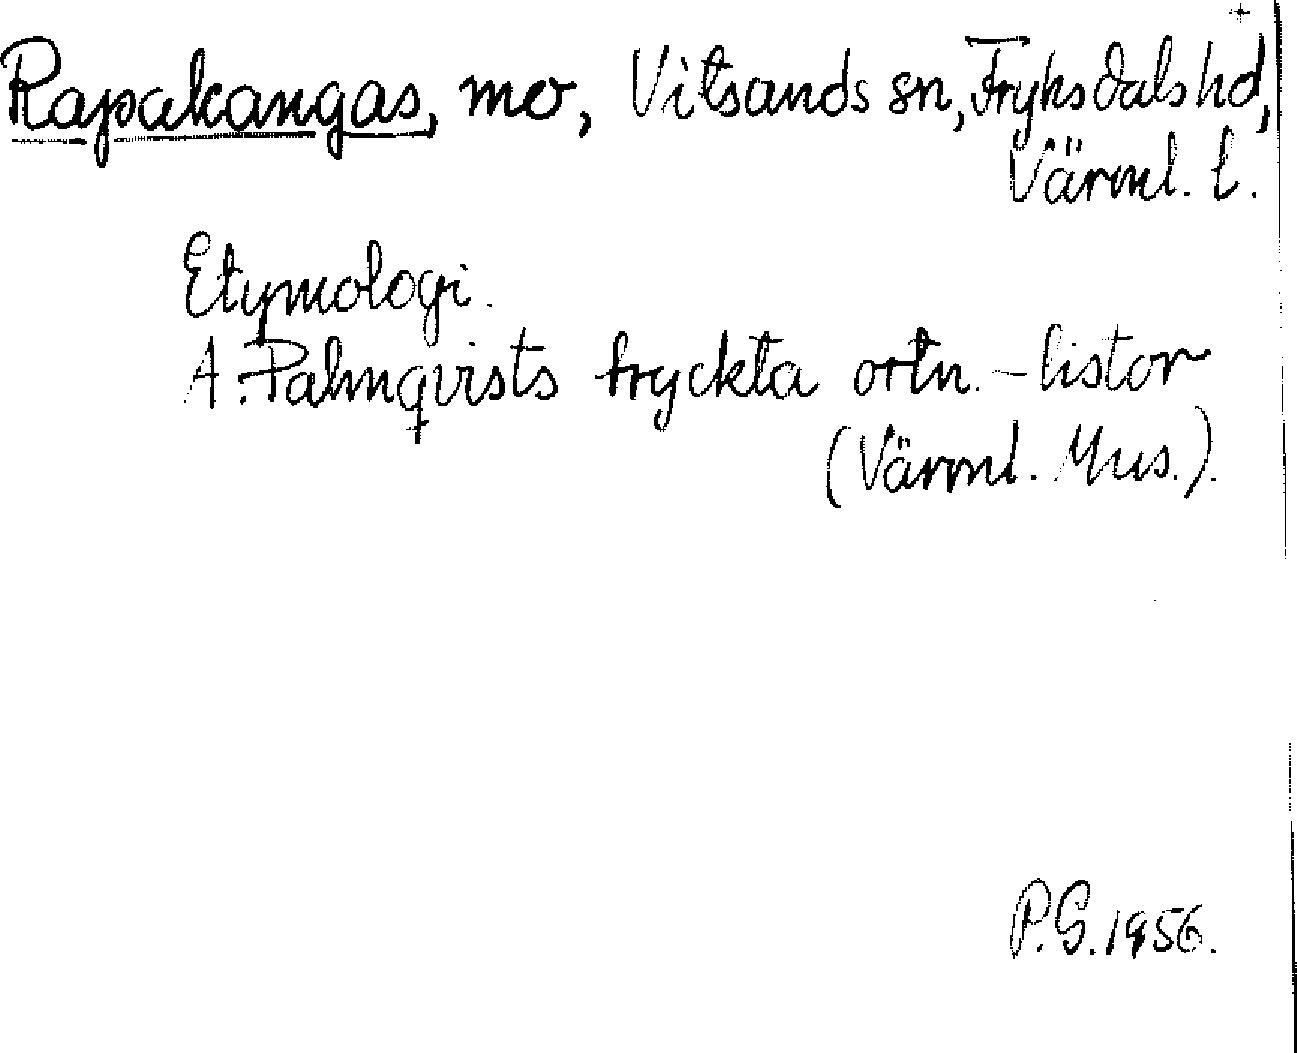 Rapakangas, mo, Vitsands sn, Fryksdals hd,
Värml. l.
Etymologi.
A. Palmqvists tryckta ortn.-listor
(Värml. Mus.).
P.G. 1956.